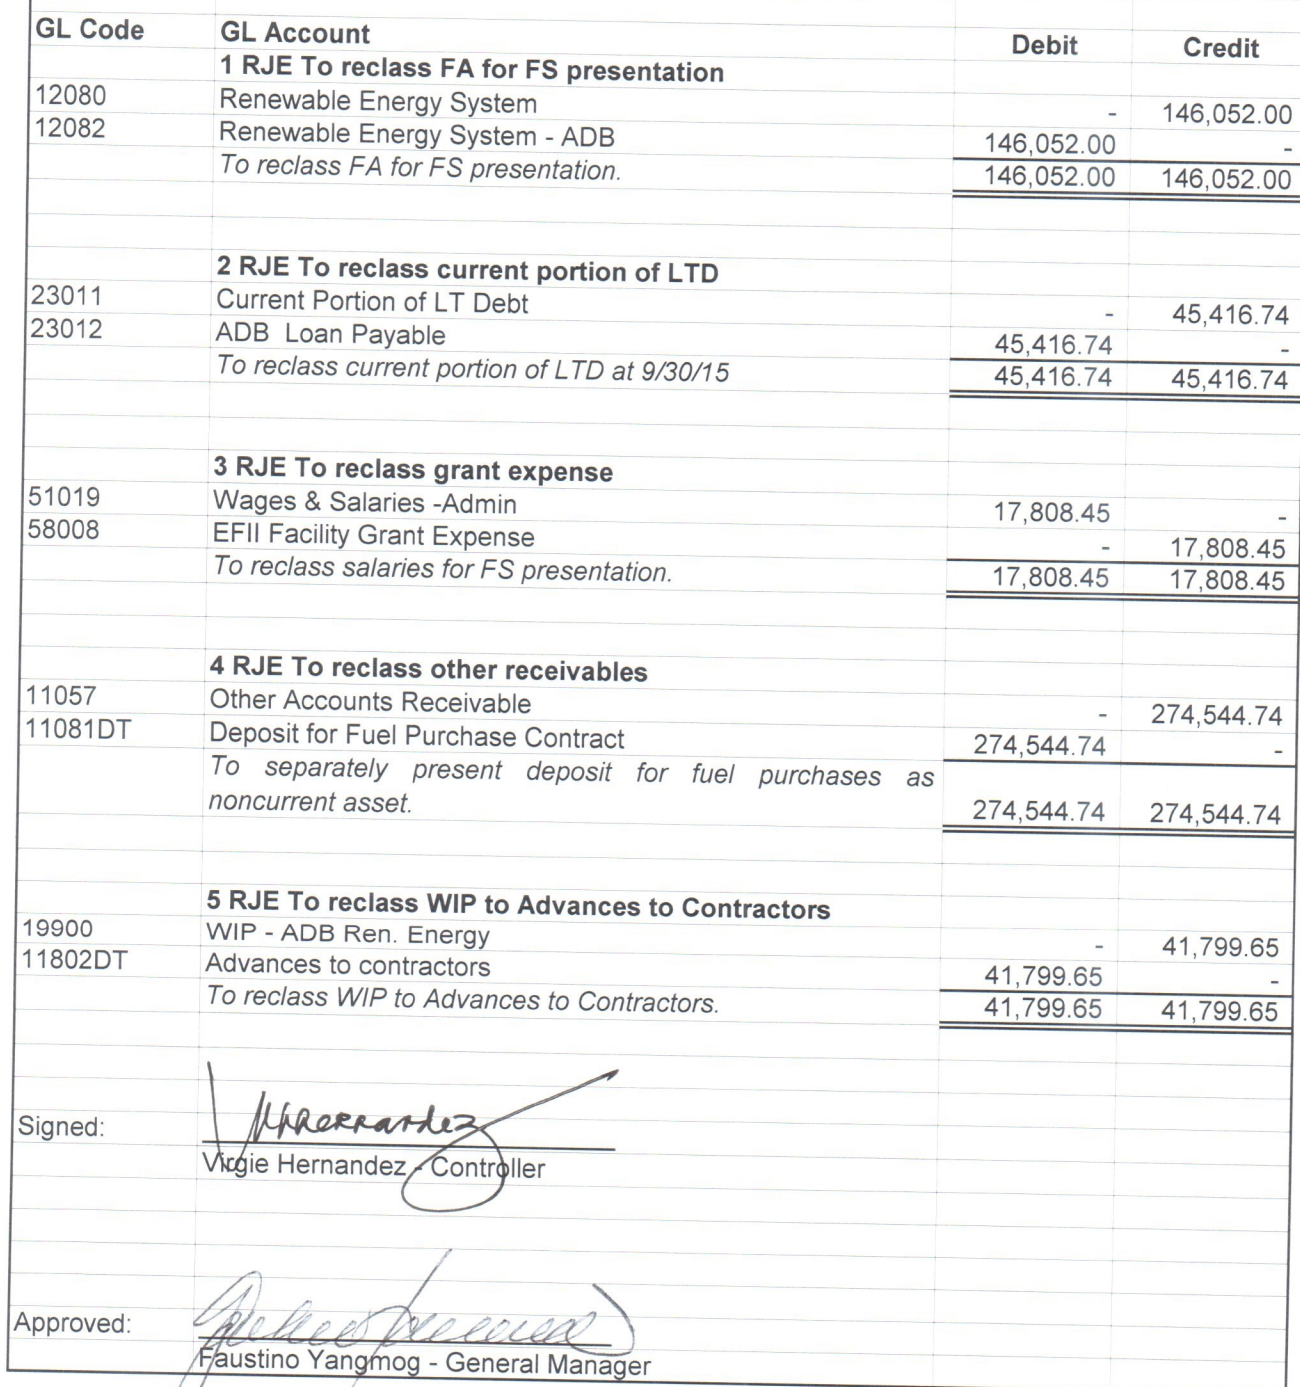 GL Code GL Account Debit Credit
1 RJE To reclass FA for FS presentation
12080 Renewable Energy System - 146,052.00
12082 Renewable Energy System - ADB 146,052.00 -
To reclass FA for FS presentation. 146,052.00 146,052.00
2 RJE To reclass current portion of LTD
23011 Current Portion of LT Debt - 45,416.74
23012 ADB Loan Payable 45,416.74 -
To reclass current portion of LTD at 9/30/15 45,416.74 45,416.74
3 RJE To reclass grant expense
51019 Wages & Salaries -Admin 17,808.45 -
58008 EFII Facility Grant Expense - 17,808.45
To reclass salaries for FS presentation. 17,808.45 17,808.45
4 RJE To reclass other receivables
11057 Other Accounts Receivable - 274,544.74
11081DT Deposit for Fuel Purchase Contract 274,544.74 -
To separately present deposit for fuel purchases as
noncurrent asset. 274,544.74 274,544.74
5 RJE To reclass WIP to Advances to Contractors
19900 WIP - ADB Ren. Energy - 41,799.65
11802DT Advances to contractors 41,799.65 -
To reclass WIP to Advances to Contractors. 41,799.65 41,799.65
Signed:
Virgie Hernandez - Controller
Approved:
Faustino Yangmog - General Manager